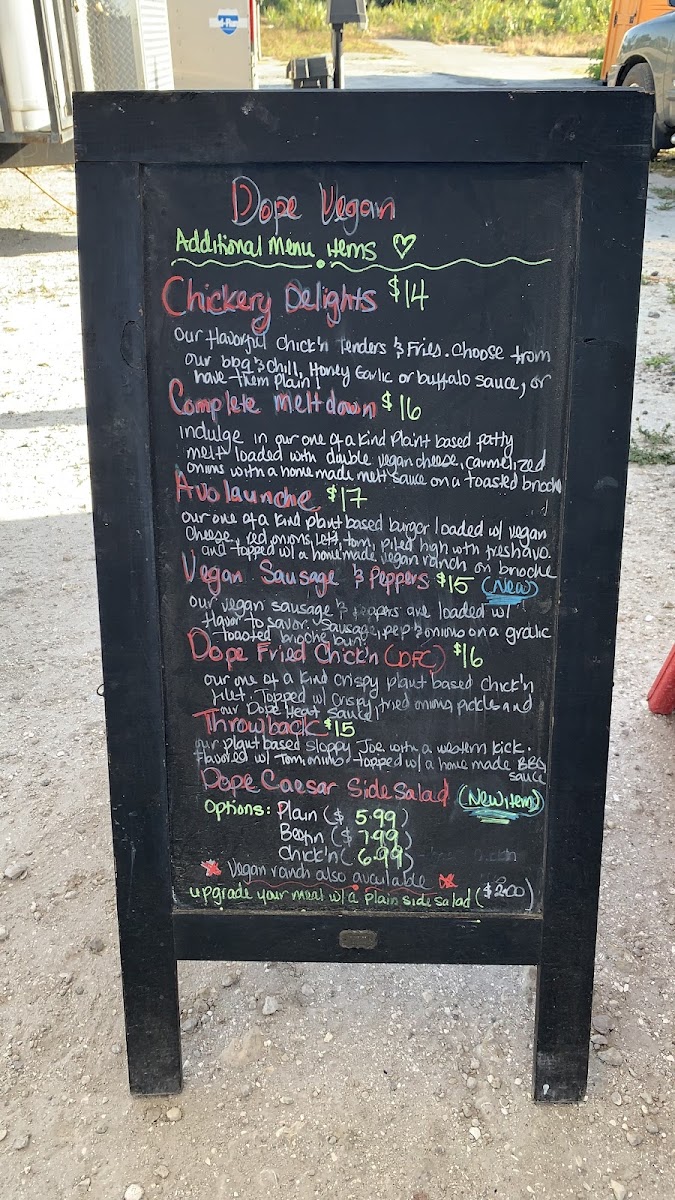 Dope Vegan
Additional Menu items
Chickery Delights $14
Our flavorful Chick'n Tenders & Fries. Choose from
our bbq & chill, Honey Garlic or buffalo sauce, or
have them plain!
Complete Meltdown $16
indulge in our one of a kind Plaint based patty
melt loaded with double vegan cheese, carmelized
onions with a homemade melt sauce on a toasted brioche
Avolaunche $17
our one of a kind plant based burger loaded w/ vegan
Cheese, red onions, lett, tom, piled high wth fresh avo.
and topped w/ a homemade vegan ranch on brioche
Vegan Sausage & Peppers $15 (New)
our vegan sausage & peppers are loaded w/
flavor to savor. Sausage, pep & onions on a gralic
toasted brioche bun
Dope Fried Chick'n (DFC) $16
our one of a kind crispy plant based chick'n
filet. Topped w/ crispy fried onions, pickles and
our Dope Heat Sauce!
Throwback $15
our plant based sloppy Joe with a western kick.
flavored w/ Tom, onino topped w/ a home made BBQ
sauce
Dope Caesar Side Salad (New item)
Options: Plain ($ 5.99)
($ 7.99)
Chick'n ( 6.99)
Vegan ranch also available
upgrade your meal w/ a plain side salad ($2.00)